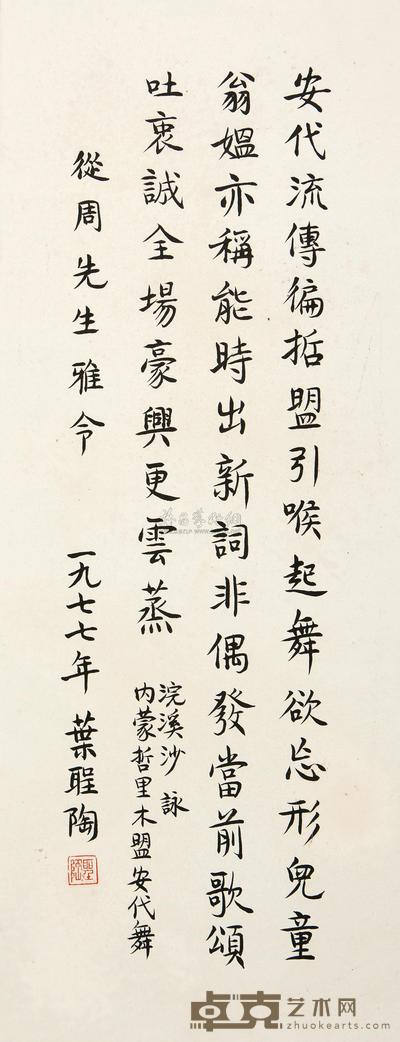 安代流傳徧哲盟引喉起舞欲忘形兒童
翁媼亦稱能時出新詞非偶發當前歌頌
吐衷誠全場豪興更雲蒸
浣溪沙 詠
内蒙哲里木盟安代舞
從周先生雅令
一九七七年 葉聖陶
卓克艺术网
zhuokearts.com